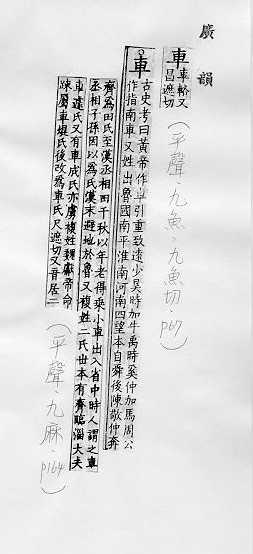 廣韻
車
車輅又
昌遮切
(平聲・九魚・九魚切・p67)
車
古史考曰黃帝作車引重致遠少昊時加牛禹時奚仲加馬周公
作指南車又姓出魯國南平淮南河南四望本自舜後陳敬仲奔
齊爲田氏至漢丞相田千秋以年老得乘小車出入省中時人謂之車
丞相子孫因以爲氏漢末避地於魯又複姓二氏世本有齊臨淄大夫
車遽氏又有車成氏亦虜複姓魏獻帝命
疎屬車焜氏後改爲車氏尺遮切又音居二
(平聲・九麻・p164)